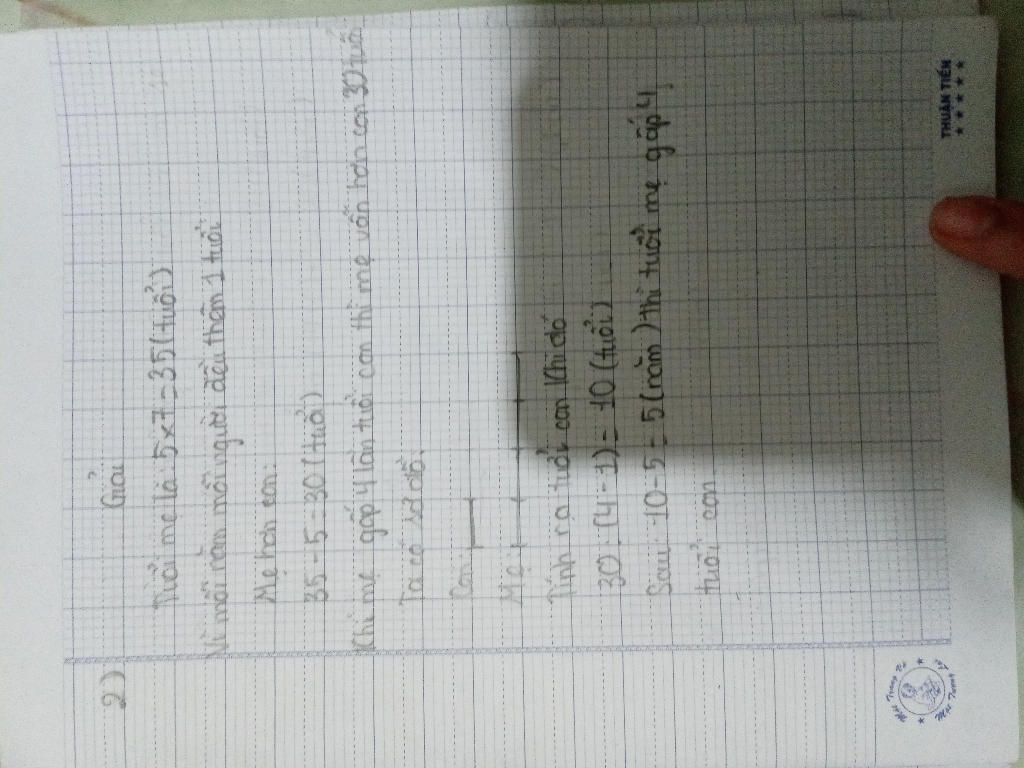 2)
Giải
Tuổi mẹ là: 5 x 7 = 35 (tuổi)
Vì mỗi năm mỗi người đều thêm 1 tuổi
Mẹ hơn con:
35 - 5 = 30 (tuổi)
Khi mẹ gấp 4 lần tuổi con thì mẹ vẫn hơn con 30 tuổi
Ta có sơ đồ:
Con
Mẹ
Tính ra tuổi con khi đó
30 : (4 - 1) = 10 (tuổi)
Sau: 10 - 5 = 5 (năm) thì tuổi mẹ gấp 4
tuổi con
THUẬN TIẾN